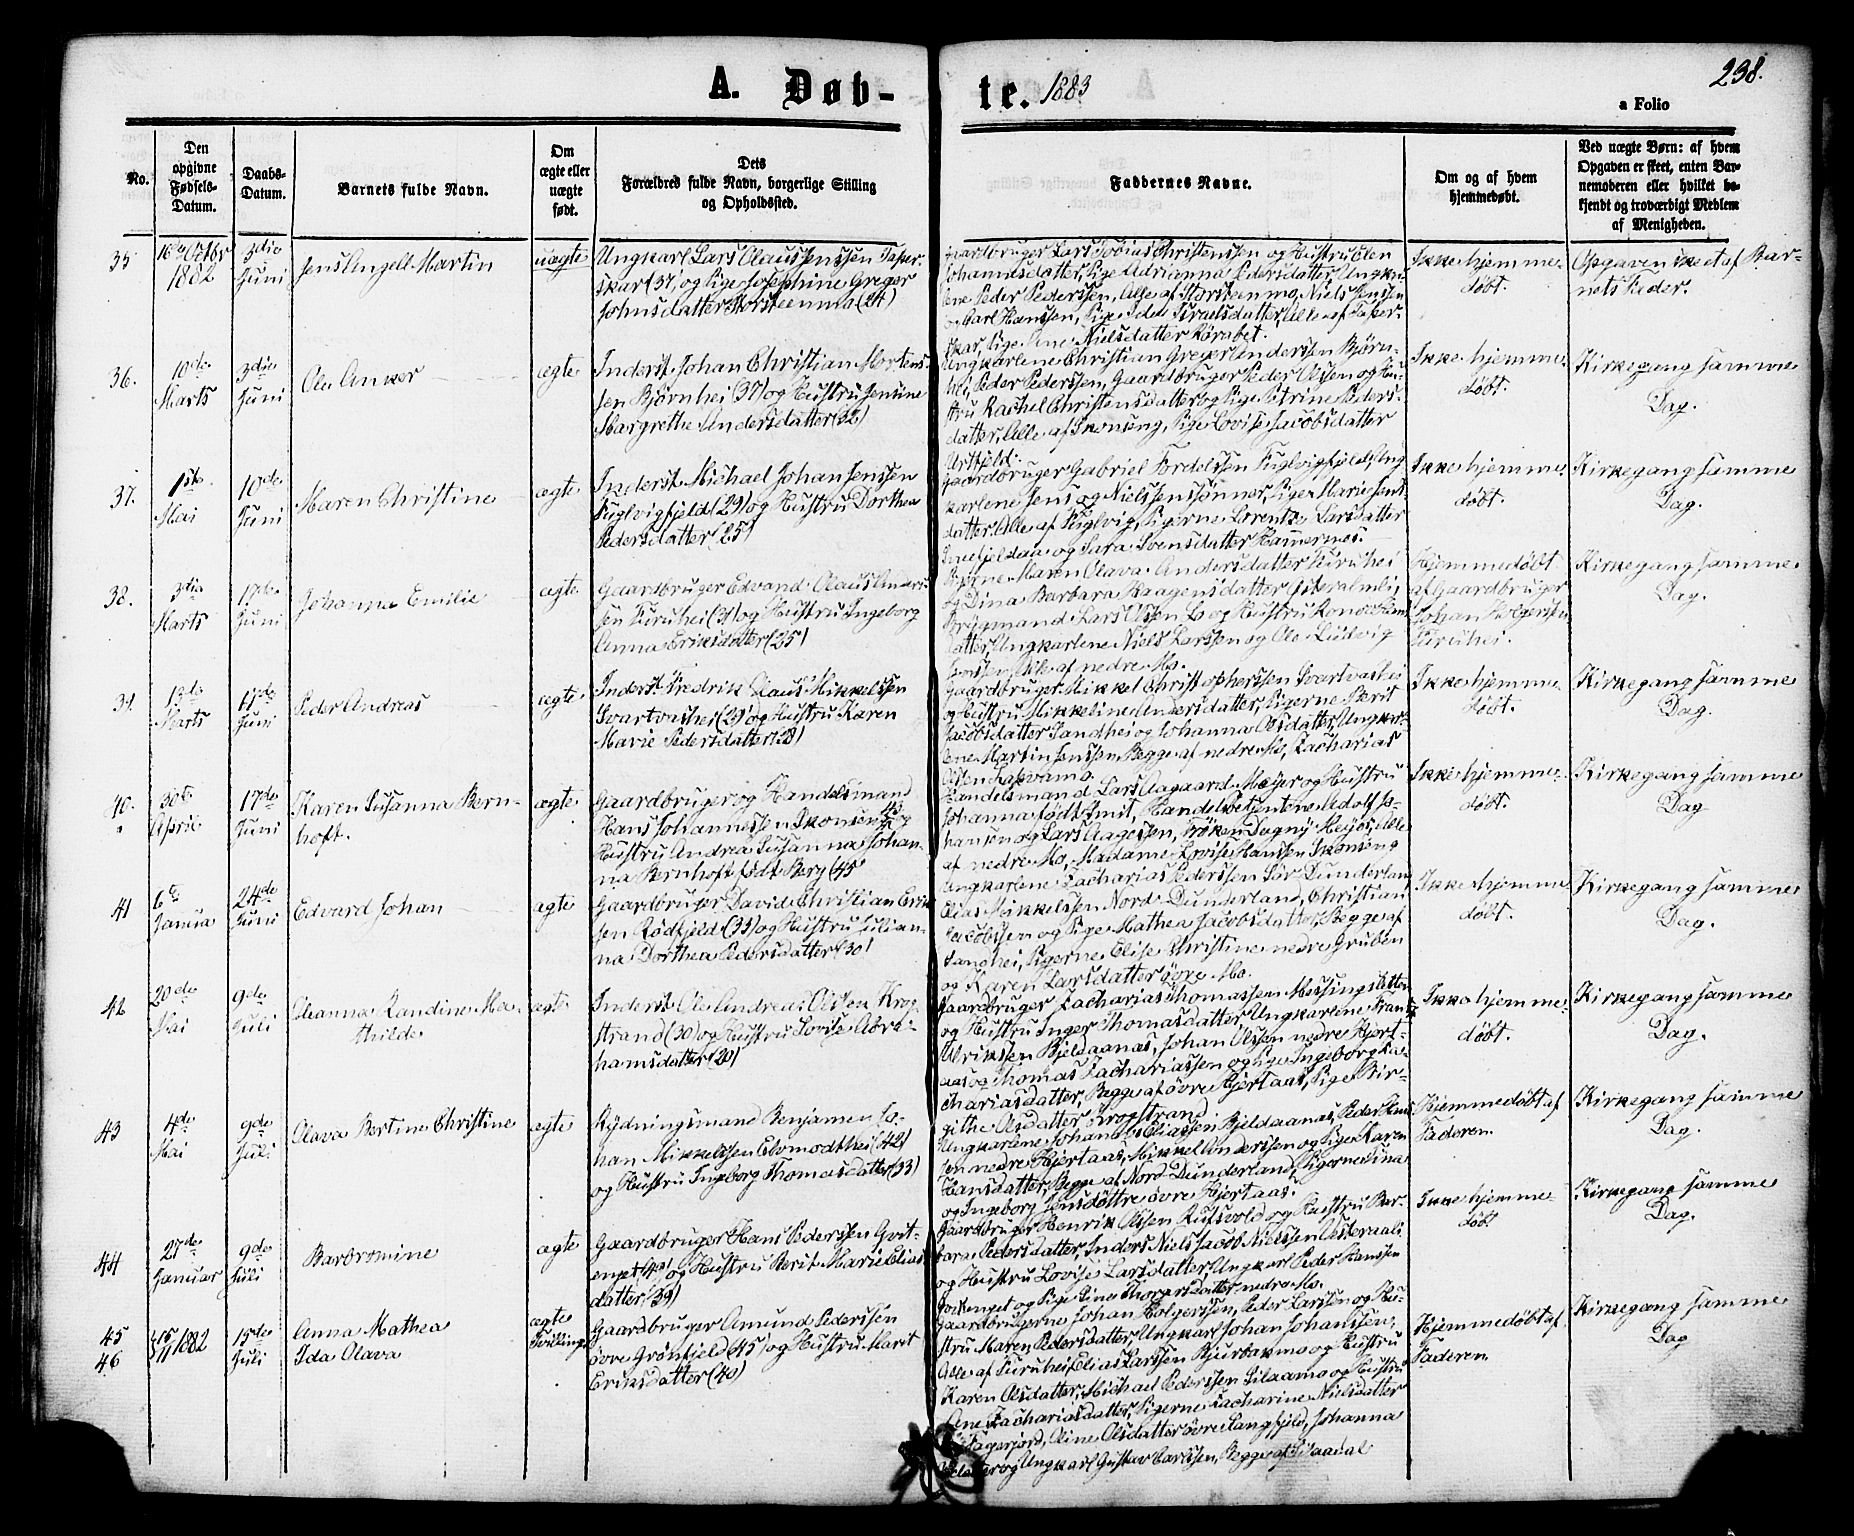 238.
A. Døb- te. 1883
a Folio
No.
Den opgivne Fødsels-Datum.
Daabs-Datum.
Barnets fulde Navn.
Om ægte eller uægte født.
Dets Forældres fulde Navn, borgerlige Stilling og Opholdssted.
Faddernes Navne.
Om og af hvem hjemmedøbt.
Ved uægte Børn: af hvem Opgaven er skeet, enten Barnemoderen eller hvilket bekjendt og troværdigt Medlem af Menigheden.
35
16de Octbr 1882
3die Juni
Jens Angell Martin
uægte
Ungkarl Lars Olaus Jenssen Taper-
skar (31) og Pige Josephine Greger
Johnsdatter Storsteenmo (24)
Gaardbruger Lars Tobias Christenssen og Hustru Elen
Johannesdatter, Pige Adrianna Pedersdatter, Ungkar-
lene Peder Pederssen, Alle af Storsteenmo, Niels Jenssen
og Carl Hanssen, Pige Ida Israelsdatter, Alle af Taper-
skar, Pige Ane Nielsdatter Rørabet.
Ikke hjemme-
døbt.
Opgaven skeet af Bar-
nets Fader.
36.
10de Marts
3die Juni
Ole Anker
ægte
Inderst Johan Christian Mortens-
sen Bjørnhei (37) og Hustru Jentine
Margrethe Andersdatter (32)
Ungkarlene Christian Greger Anderssen Bjørn-
hei, Peder Pederssen, Gaardbruger Peder Olssen og Hu-
stru Rachel Christensdatter og Pige Petrine Peders-
datter, Alle af Skonseng, Pige Lovise Jacobsdatter
Urtfjeld.
Ikke hjemme-
døbt.
Kirkegang samme
Dag.
37.
1ste Mai
10de Juni
Maren Christine
ægte
Inderst Michael Johan Jenssen
Fuglvigfjeld (29) og Hustru Dorthea
Pedersdatter (25)
Gaardbruger Gabriel Fordelssen Fuglvigfjeld, Ung-
karlene Jens og Niels Jenssønner, Pige Marie Jens-
datter, Alle af Fuglvig, Pigerne Lorentse Larsdatter
og Sara Svensdatter Hammernes.
Ikke hjemme-
døbt.
Kirkegang samme
Dag.
38.
3die Marts
17de Juni
Johanna Emilie
ægte
Gaardbruger Edvard Olaus Anders-
sen Furuhei (31) og Hustru Ingeborg
Anna Eriksdatter (25)
Pigerne Maren Olava Andersdatter Furuhei
og Dina Barbara Haagensdatter
Lars Olssen og Hustru
datter, Ungkarlene Niels Larssen og Ole Ludvig
Jenssen, Alle af nedre Mo.
Hjemmedøbt
af Gaardbruger
Johan Holgerssen
Furuhei.
Kirkegang samme
Dag.
39.
13de Marts
17de Juni
Peder Andreas
ægte
Inderst Fredrik Olaus Mikkelssen
Svartvashei (29) og Hustru Karen
Marie Pedersdatter (28)
Gaardbruger Mikkel Christophersen Svartvashei
og Hustru Mikkeline Andersdatter, Pigerne Berit
Jacobsdatter Sandhei og Johanna Olsdatter, Ungkar-
lene Martin Jenssen Begge af nedre Mo, Zacharias
Olssen Laxvamo.
Ikke hjemme-
døbt.
Kirkegang samme
Dag.
40.
30te April
17de Juni
Karen Susanna Bern-
hoft.
ægte
Gaardbruger og Handelsmand
Hans Johannessen Skonseng og
Hustru Andrea Susanna Johan-
na Bernhoft født Berg (45
Handelsmand Lars Aagaard Meyer og Hustru
Johanna født Smit, Handelsbetjentene Adolf Jo-
hansen og Lars Aagessen, Frøken Dagny Meyer, Alle
af nedre Mo, Madame Lovise Hanssen Skonseng
Ikke hjemme-
døbt.
Kirkegang samme
Dag
41
6te Janua
24de Juni
Edvard Johan
ægte
Gaardbruger David Christian Erik-
sen Rødfjeld (33) og Hustru Julian-
na Dorthea Pedersdatter (30)
Ungkarlene Zacharias Pederssen Sør Dunderland,
Elias Mikkelssen Nord Dunderland, Christian
Jacobssen og Pige Mathea Jacobsdatter, Begge af
Langhei, Pigerne Elise Christine nedre Gruben
og Karen Larsdatter øvre Mo.
Ikke hjemme-
døbt.
Kirkegang samme
Dag.
42
20de Mai
9de Juli
Oleanna Randine Ma-
thilde
ægte
Inderst Ole Andreas Olssen Krog-
strand (30) og Hustru Lovise Abra-
hamsdatter (20)
Gaardbruger Zacharias Thomassen Messingsletten
og Hustru Inger Thomasdatter, Ungkarlene Frants
Ulrikssen Bjeldaanas, Johan Olssen nedre Hjert-
aas og Thomas Zachariassen og Pige Ingeborg Za-
chariasdatter, Begge af øvre Hjertaas, Pige Bir-
githe Olsdatter Krogstrand
Ikke hjemme-
døbt.
Kirkegang samme
Dag.
43
4de Mai
9de Juli
Olava Bertine Christine
ægte
Rydningsmand Benjamin Jo-
han Mikkelssen Elvmodthei (42)
og Hustru Ingeborg Thomasdatter (33)
Ungkarlene Johannes Eliassen Bjeldaanas, Peder Hans-
sen nedre Hjertaas, Mikkel Anderssen og Pige Karen
Hansdatter, Begge af Nord Dunderland, Pigerne Sina
og Ingeborg Jensdøttre øvre Hjertaas.
Hjemmedøbt af
Faderen.
Kirkegang samme
Dag.
44
27de Januar
9de Juli
Barbromine
ægte
Gaardbruger Hans Pederssen Gvit-
enget (40) og Hustru Berit Marie Elias-
datter (39)
Gaardbruger Henrik Olssen Rufsvold og Hustru Bar-
bara Pedersdatter, Inderst Niels Jacob Nielssen
og Hustru Lovise Larsdatter, Ungkarl Peder Hanssen
og Pige Sina Thorersdatter nedre Mo.
Ikke hjemme-
døbt
Kirkegang samme
Dag.
45
46
15/11 1882
15de Juli
Anna Mathea
Ida Olava
ægte
Tvillinge
Gaardbruger Amund Pederssen
øvre Grønfjeld (45) og Hustru Marit
Eriksdatter (40)
Gaardbrugerne Johan Holgerssen, Peder Larssen og Hu-
stru Maren Pedersdatter, Ungkarl Johan Johanssen,
Alle af Furuhei, Elias Larssen Bjurbækmo og Hustru
Karen Olsdatter, Michael Pederssen Silaamo og Hustru
Ane Zachariasdatter, Pigerne Zacharine Nielsdatter
Olsdatter øvre Langfjeld, Johanna
og Ungkarl Gustav Carlssen, Begge af Silaadal
Hjemmedøbt af
Faderen.
Kirkegang samme
Dag